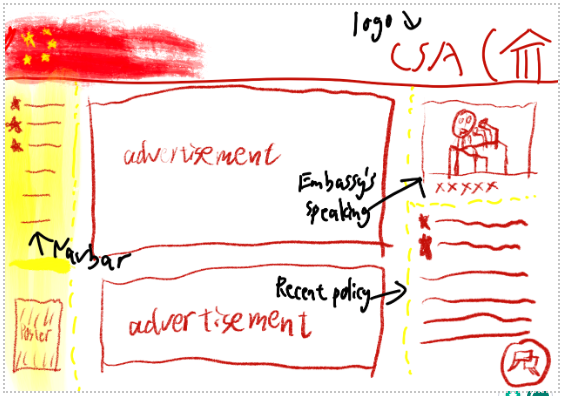 logo
CSA
advertisement
Embassy's
speaking
xxxxx
Navbar
Recent policy
advertisement
Poster